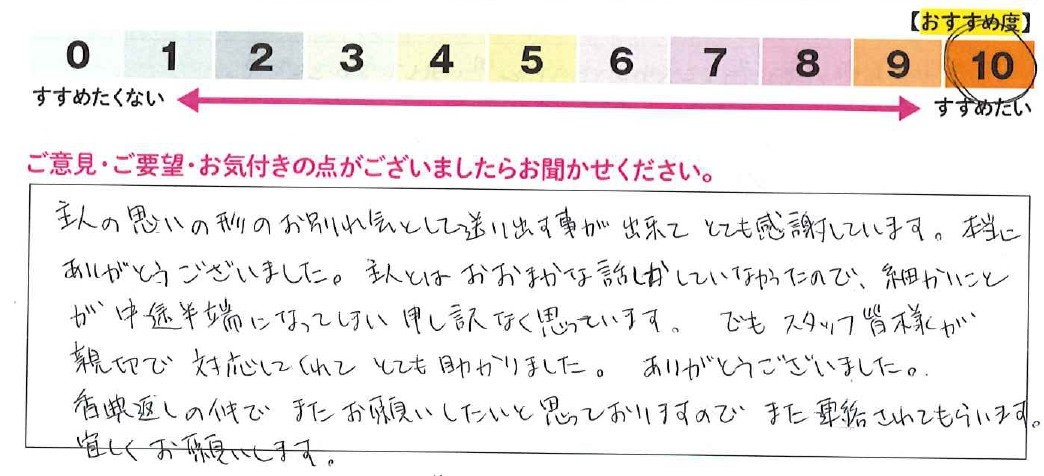 【おすすめ度】
0 1 2 3 4 5 6 7 8 9 10
すすめたくない すすめたい
ご意見・ご要望・お気付きの点がございましたらお聞かせください。
主人の思いの形のお別れ会として送り出す事が出来てとても感謝しています。本当に
ありがとうございました。主人とはおおまかな話しかしていなかったので、細かいこと
が中途半端になってしまい申し訳なく思っています。でもスタッフ皆様が
親切で対応してくれてとても助かりました。ありがとうございました。
香典返しの件でまたお願いしたいと思っておりますのでまた連絡されてもらいます。
宜しくお願いします。